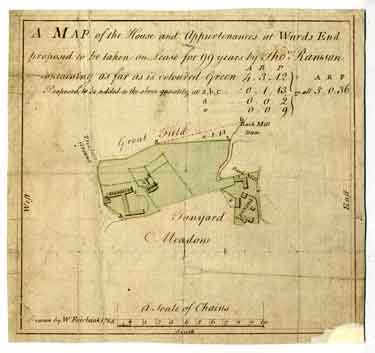 A MAP of the House and Appurtenances at Wards End
proposed to be taken on Lease for 99 years by Thos. Ramsan
A R P
containing as far as is coloured Green 4.3.12
A R P
Proposed to be added to the above quantity at a, b, c 0.1.13 in all 5.0.36
0 0 2
0 0 9
Great Field
Bark Mill
Dam
West
East
Tanyard
Meadow
A Scale of Chains
Drawn by W. Fairbank
South